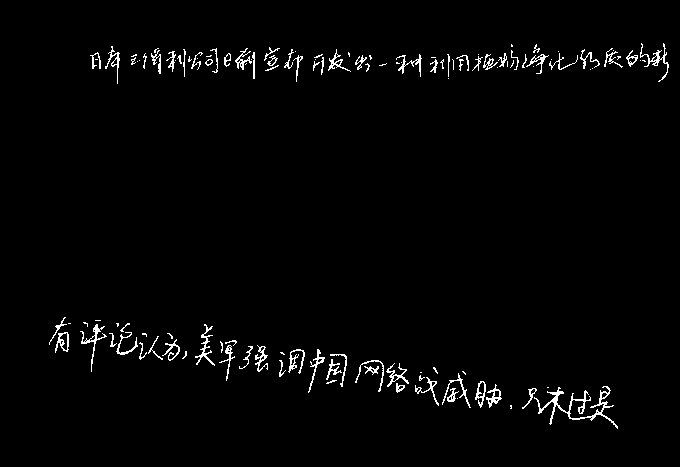 日本三得利公司日前宣布开发出一种利用植物净化水质的新
有评论认为,美军强调中国网络战威胁,只不过是